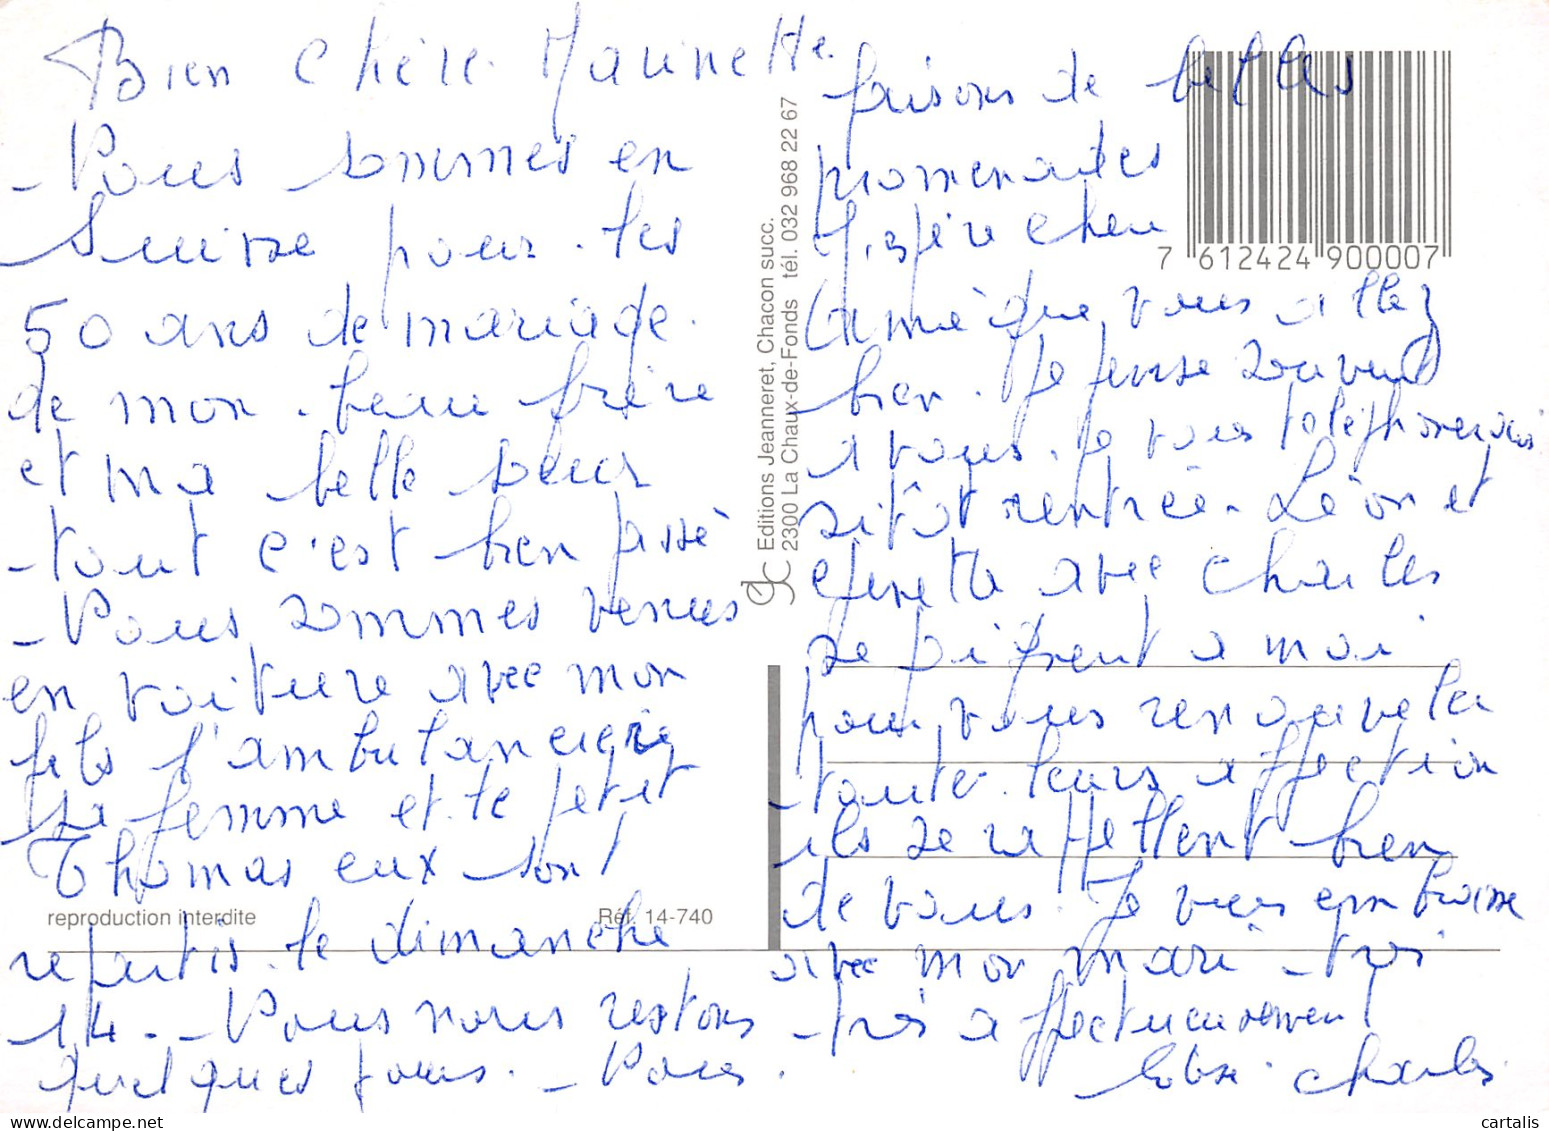 Bien Chère Marinette.
Nous sommes en
Suisse pour les
50 ans de mariage.
de mon beau frère
et ma belle soeur
tout c'est bien passé
Nous sommes venus
en voiture avec mon
fils l'ambulancier
sa femme et le petit
Thomas eux sont
repartis le dimanche
14. Nous nous restons
quelques jours. Nous.
faisons de belles
promenades
J'espère chère
amie que vous allez
bien. Je pense souvent
a vous. je vous téléphonerais
sitôt rentrée. Léon et
avec Charles
se joignent a moi
pour vous renouveler
toute leurs affection
ils se rappellent bien
de vous. Je vous embrasse
avec mon mari très
très affectueusement
Charles
Editions Jeanneret, Chacon succ.
2300 La Chaux-de-Fonds tél. 032 968 22 67
7 612424 900007
reproduction interdite
Réf. 14-740
cartalis.com